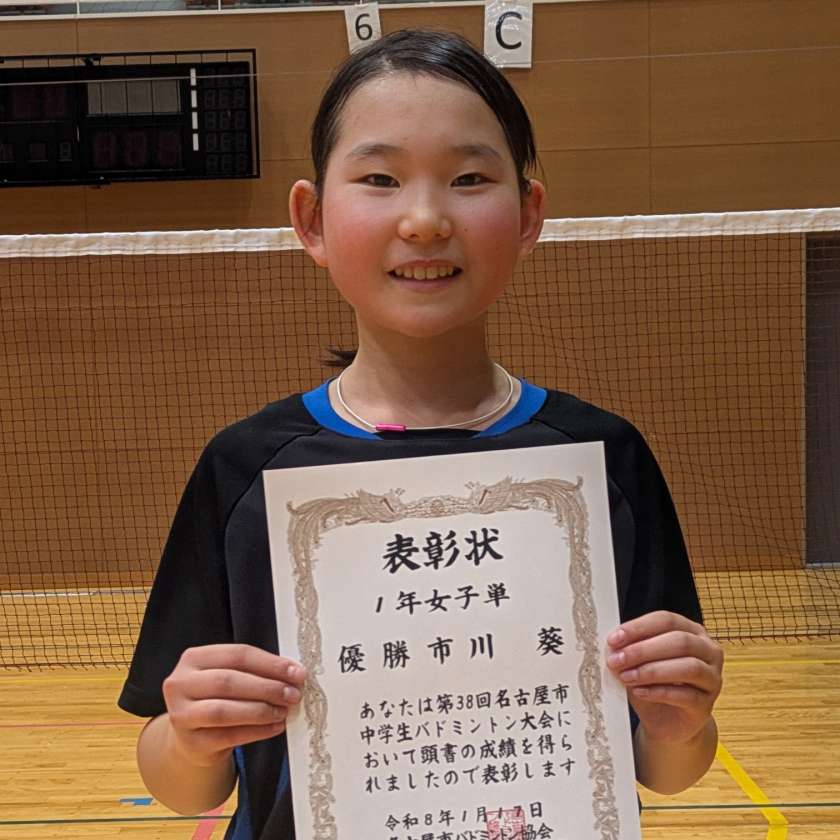 6 C
表彰状
1年女子単
優勝 市川 葵
あなたは第38回名古屋市
中学生バドミントン大会に
おいて頭書の成績を得ら
れましたので表彰します
令和8年1月17日
名古屋市バドミントン協会